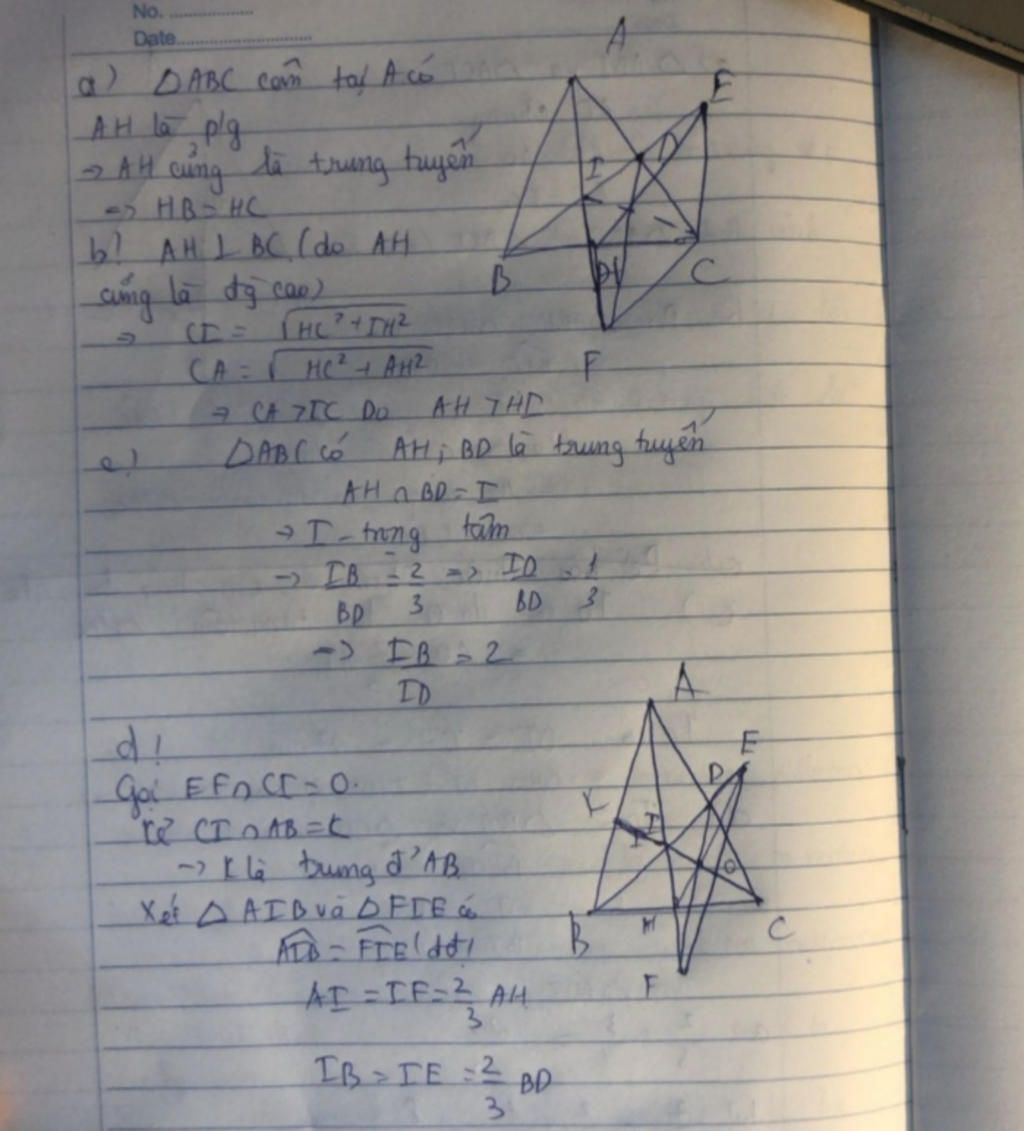 No. ..................
Date..............................
a) ΔABC cân tại A có
AH là p/g
→ AH cũng là trung tuyến
=> HB = HC
b) AH ⊥ BC (do AH
cũng là đg cao)
=> CI = √HC² + IH²
CA = √HC² + AH²
=> CA > IC Do AH > HI
c) ΔABC có AH; BD là trung tuyến
AH ∩ BD = I
→ I - trọng tâm
→ IB/BD = 2/3 => ID/BD = 1/3
=> IB/ID = 2
d)
Gọi EF ∩ CI = O.
Kẻ CI ∩ AB = K
→ K là trung đ² AB
Xét Δ AIB và Δ FIE có
AIB = FIE (đđ)
AI = IF = 2/3 AH
IB = IE = 2/3 BD
A
E
D
I
B
C
F
A
E
D
K
I
O
B
H
C
F